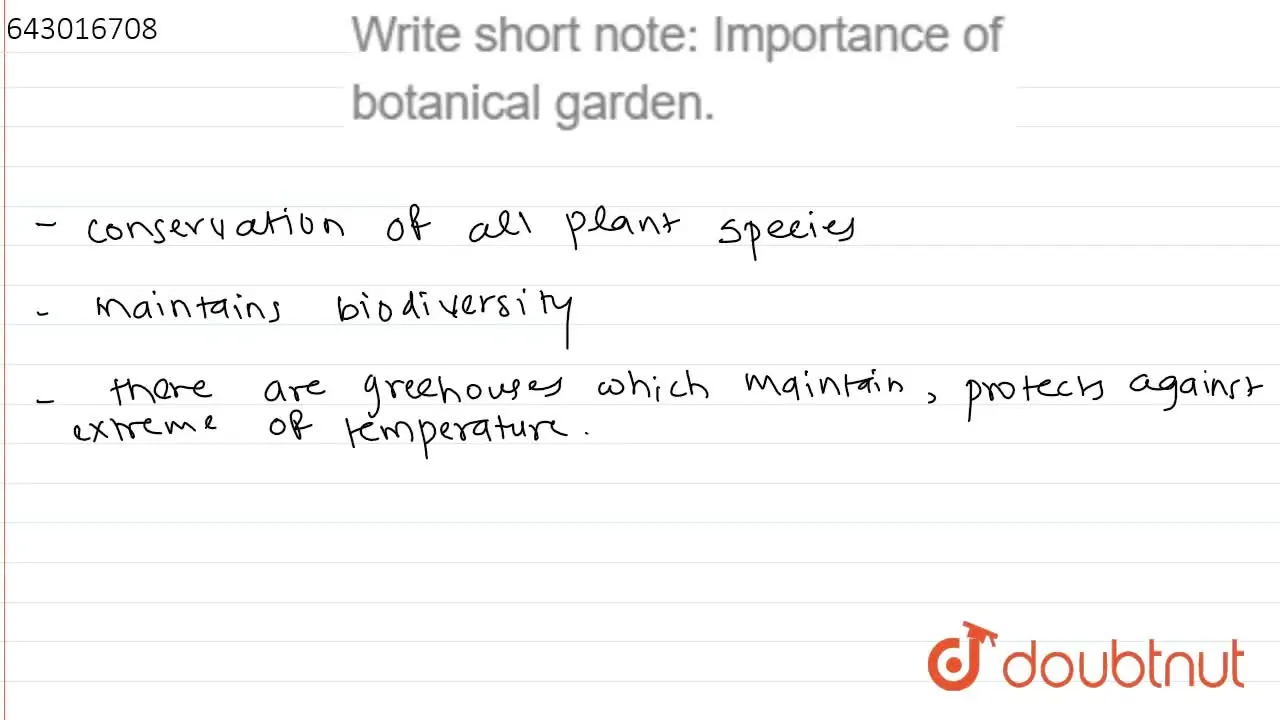 643016708
Write short note: Importance of
botanical garden.
- conservation of all plant species
- Maintains biodiversity
- there are greehouses which maintain, protects against
extreme of temperature.
doubtnut